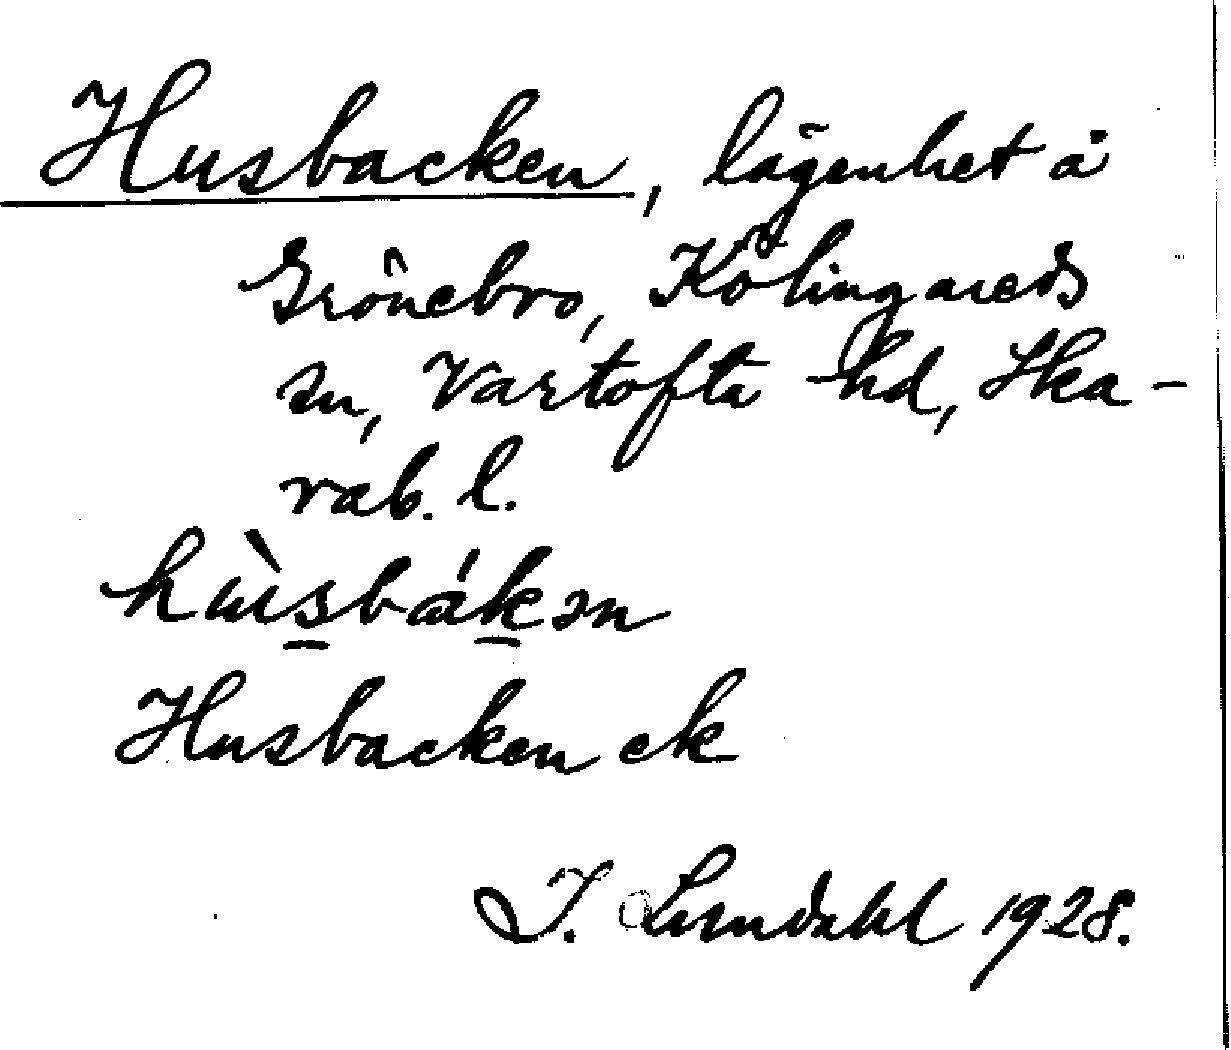 Husbacken, lägenhet å
Grönebro, Kölingareds
sn, Vartofta hd, Ska-
rab. l.
hùsbákən
Husbacken ek
I. Lundahl 1928.